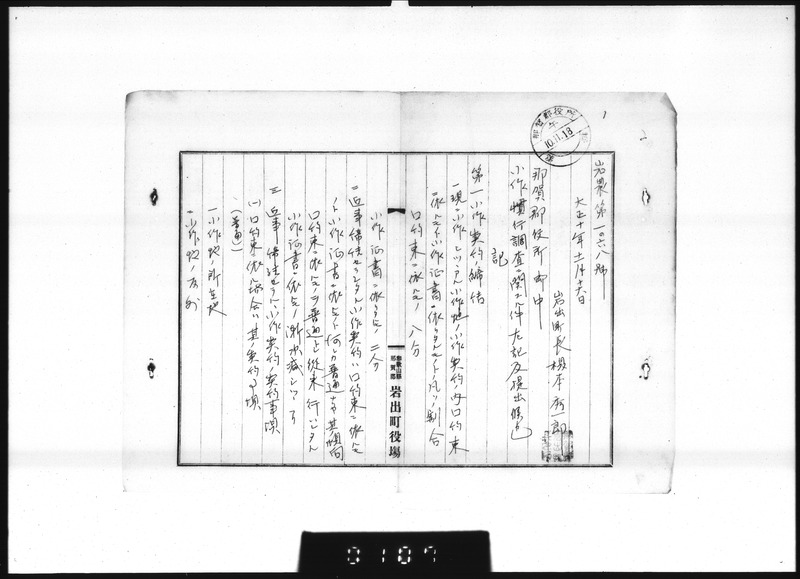 岩農第一〇六八號
大正十年十一月十六日
岩出町長
那賀郡役所御中
小作慣行調査ニ関スル件左記及提出候也
記
第一小作契約締結
一現ニ小作シツツアル小作地ノ小作契約ノ内口約束
ニ依ルモノト小作証書ニ依リタルモノトノ凡ソノ割合
口約束ニ依ルモノ 八分
小作証書ニ依ルモノ 二分
二近事締結セラルル小作契約ハ口約束ニ依ルモ
ノト小作証書ニ依ルモノト何レカ普通ナルヤ其傾向
口約束ニ依ルモノヲ普通トシ従来行ハレタル
小作証書ニ依ルモノ漸次減シツツアリ
三近事締結セラルル小作契約ノ契約事項
(一)口約束ニ依ル場合ハ其ノ契約事項
(普通)
一小作地ノ所在地
一小作地ノ
和歌山縣
那賀郡
岩出町役場
那賀郡役所
10.11.18
1
2
0187